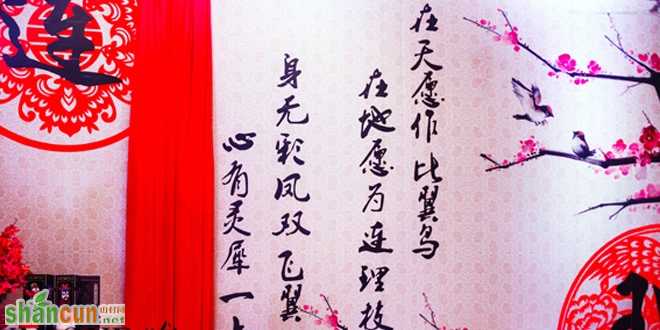 在天愿作比翼鸟
在地愿为连理枝
身无彩凤双飞翼
心有灵犀一
連
shancun
山村网
.net